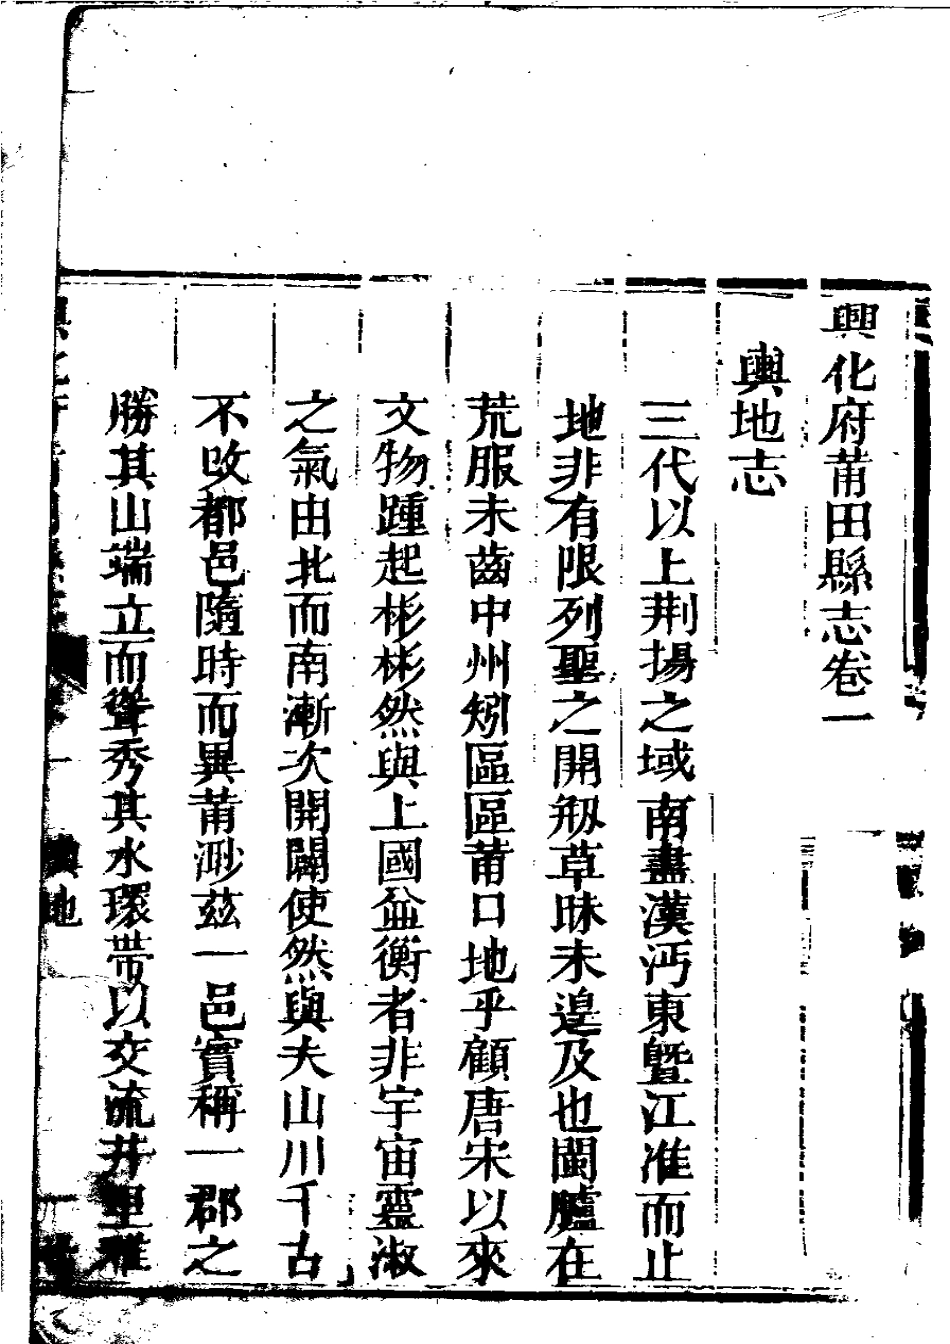 興化府莆田縣志卷一
輿地志
三代以上荆揚之域南盡漢沔東曁江淮而止
地非有限列聖之開剏草昧未遑及也閩臚在
荒服未齒中州矧區區莆口地乎顧唐宋以來
文物踵起彬彬然與上國盆衡者非宇宙靈淑
之氣由北而南漸次開闢使然與夫山川千古
不改都邑隨時而異莆渺茲一邑實稱一郡之
勝其山端立而聳秀其水環帶以交流井里雜
一
輿地